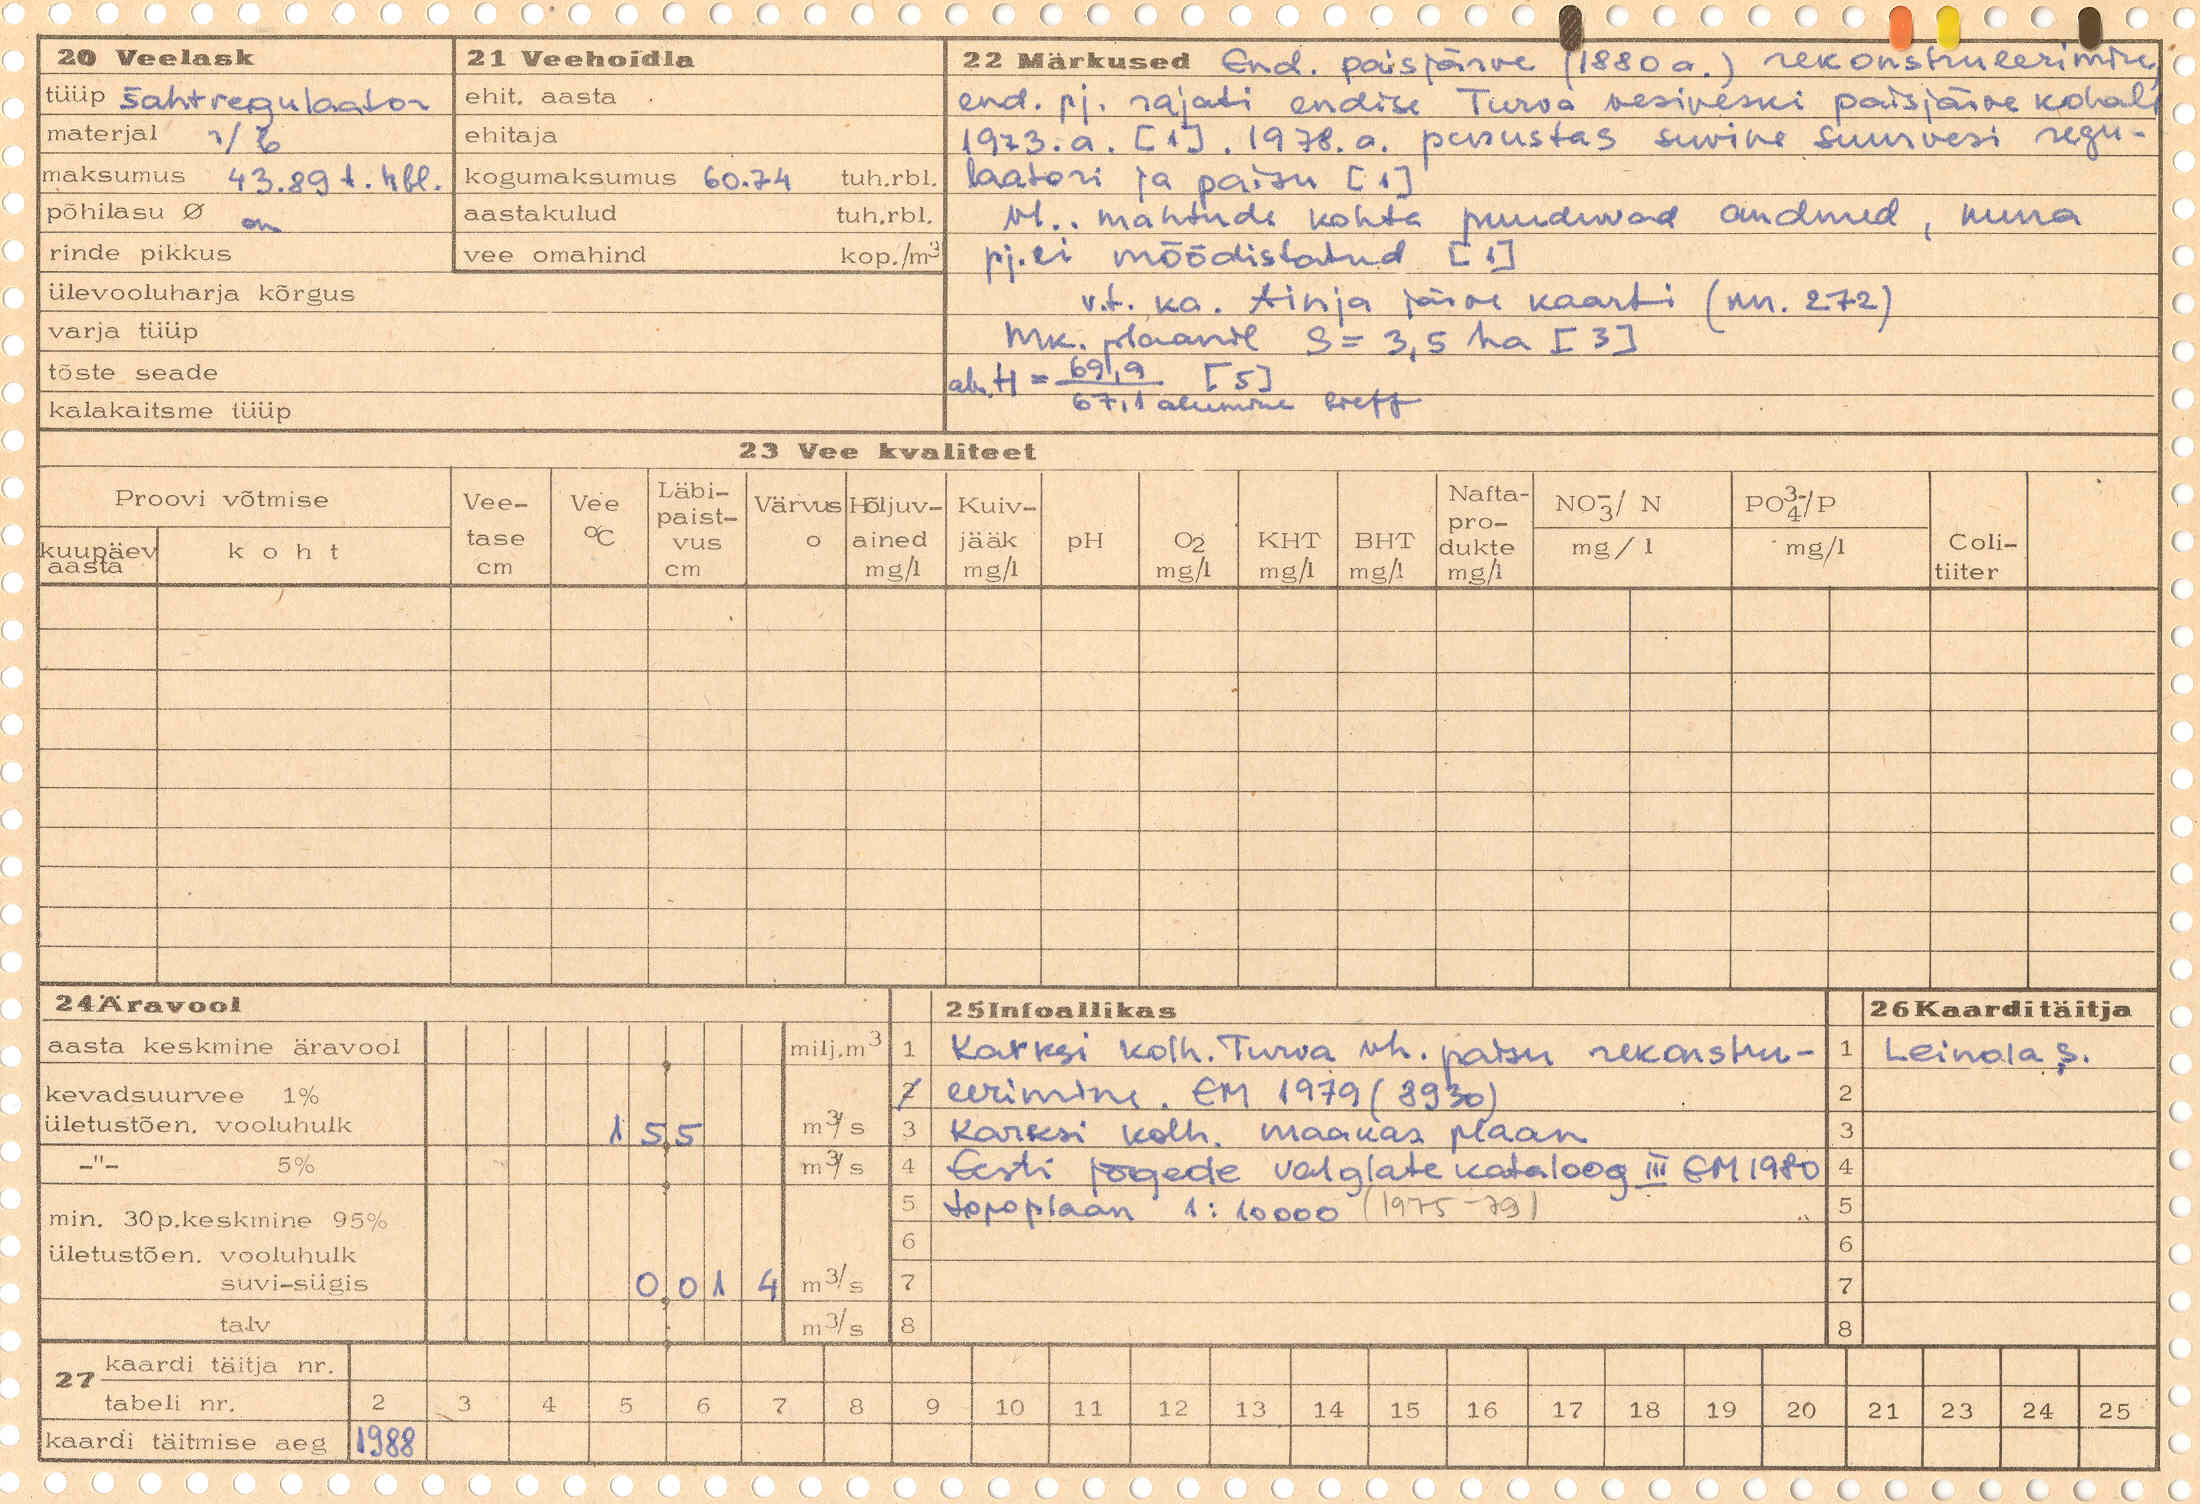 20 Veelask
tüüp šahtregulaator
materjal r/b
maksumus 43.89 t. rbl.
põhilasu Ø
rinde pikkus
ülevooluharja kõrgus
varja tüüp
tõste seade
kalakaitsme tüüp
21 Veehoidla
ehit. aasta
ehitaja
kogumaksumus 60.74 tuh.rbl.
aastakulud tuh.rbl.
vee omahind kop./m³
22 Märkused End. paisjärve (1880 a.) rekonstrueerimine,
end. pj. rajati endise Turva vesiveski paisjärve kohale
1973. a. [1]. 1978. a. purustas suvine suurvesi regu-
laatori ja paisu [1]
vh. mahtude kohta puuduvad andmed, kuna
pj. ei mõõdistatud [1]
v.t. ka. Ainja järve kaarti (nr. 272)
Mk. plaanil S = 3,5 ha [3]
abs. H = 69,9 [5]
67,1 alumine bieff
23 Vee kvaliteet
Proovi võtmise
kuupäev aasta
koht
Vee-tase cm
Vee °C
Läbi-paist-vus cm
Värvus o
Hõljuv-ained mg/l
Kuiv-jääk mg/l
pH
O2 mg/l
KHT mg/l
BHT mg/l
Nafta-pro-dukte mg/l
NO3⁻/ N mg/l
PO4³⁻/P mg/l
Coli-tiiter
24 Äravool
aasta keskmine äravool milj.m³
kevadsuurvee 1%
ületustõen. vooluhulk 15,5 m³/s
-"- 5% m³/s
min. 30p.keskmine 95%
ületustõen. vooluhulk
suvi-sügis 0,014 m³/s
talv m³/s
25 Infoallikas
1 Karksi kolh. Turva vh. paisu rekonstru-
2 eerimine. EM 1979 (8930)
3 Karksi kolh. maakas. plaan
4 Eesti jõgede valglate kataloog III EM 1980
5 topoplaan 1:10000 (1975-79)
6
7
8
26 Kaarditäitja
1 Leinola S.
2
3
4
5
6
7
8
27 kaardi täitja nr.
tabeli nr. 2 3 4 5 6 7 8 9 10 11 12 13 14 15 16 17 18 19 20 21 23 24 25
kaardi täitmise aeg 1988